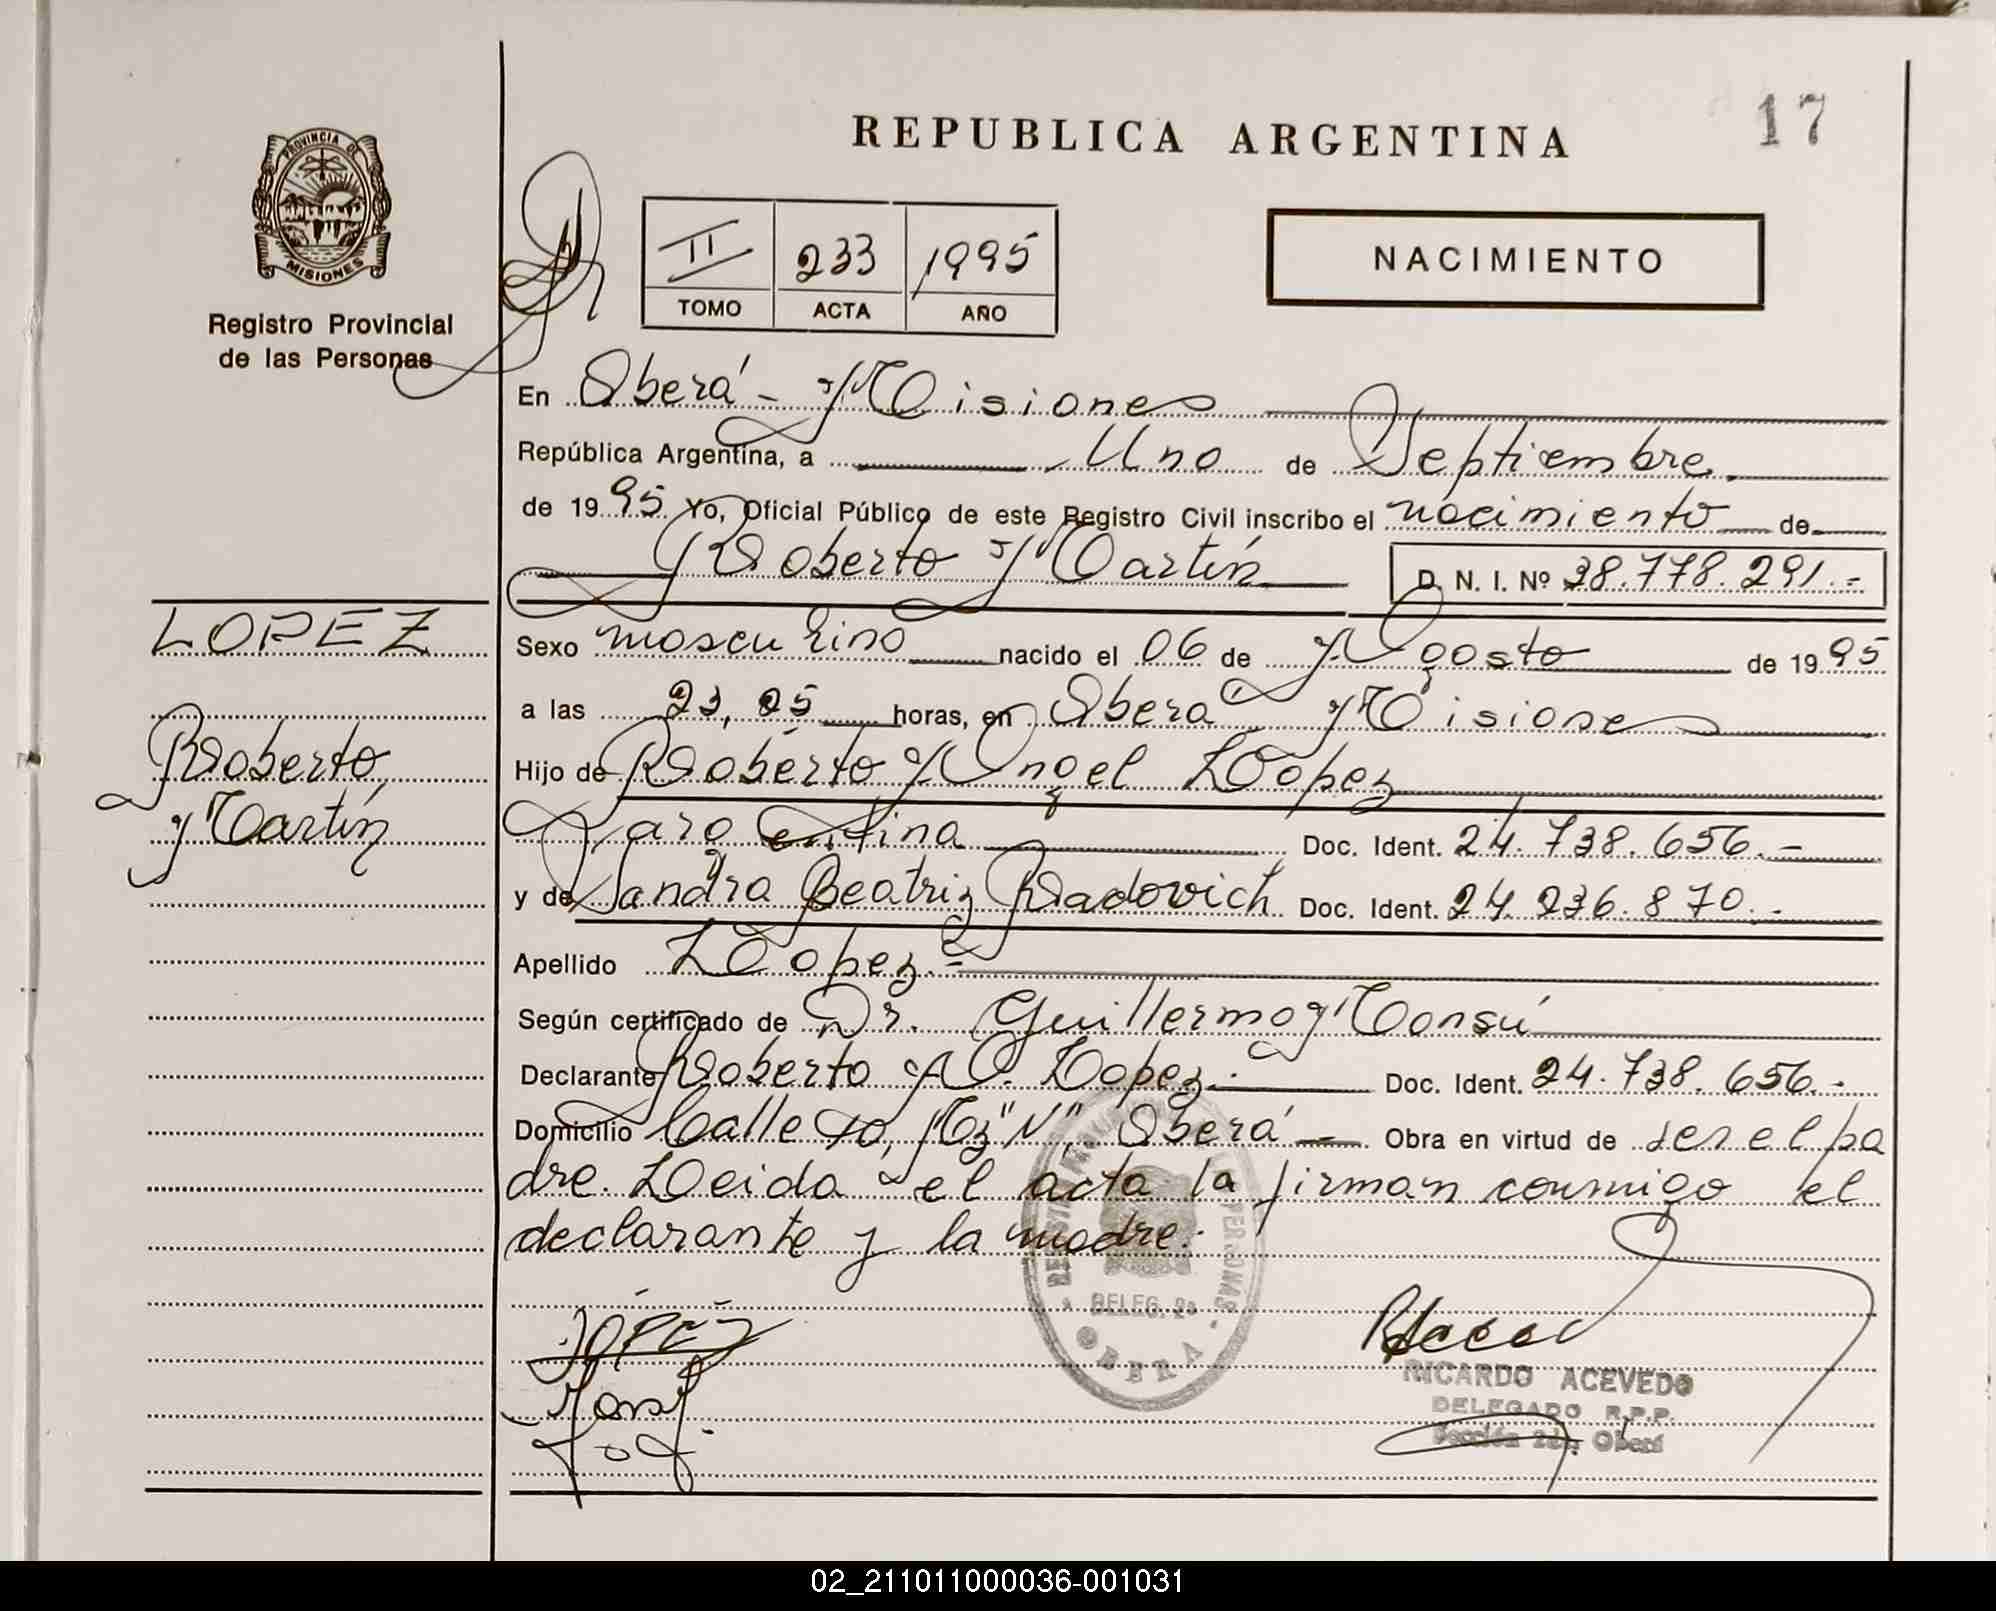 REPUBLICA ARGENTINA
17
PROVINCIA DE
MISIONES
Registro Provincial
de las Personas
II 233 1995
TOMO ACTA AÑO
NACIMIENTO
En Oberá - Misiones
República Argentina, a Uno de Septiembre
de 1995 Yo, Oficial Público de este Registro Civil inscribo el nacimiento de
Roberto Martín D. N. I. Nº 38.778.291.-
LOPEZ
Roberto,
Martín
Sexo masculino nacido el 06 de Agosto de 1995
a las 23,05 horas, en Oberá Misiones
Hijo de Roberto Angel Lopez
Doc. Ident. 24.738.656.-
y de Sandra Beatriz Radovich Doc. Ident. 24.236.870.-
Apellido Lopez.-
Según certificado de Dr. Guillermo Monsú
Declarante Roberto A. Lopez.- Doc. Ident. 24.738.656.-
Domicilio Calle Mz "N", Oberá - Obra en virtud de ser el pa
dre. Leida el acta la firman conmigo el
declarante y la madre.
DELEG. 2a
OBERA
LOPEZ
RICARDO ACEVEDO
DELEGADO R.P.P.
Sección 2da. Oberá
02_211011000036-001031